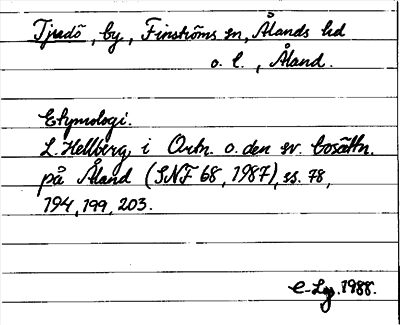 Tjudö, by, Finströms sn, Ålands hd
o. l., Åland.
Etymologi.
L. Hellberg i Ortn. o. den sv. bosättn.
på Åland (SNF 68, 1987), ss. 78,
194, 199, 203.
1988.